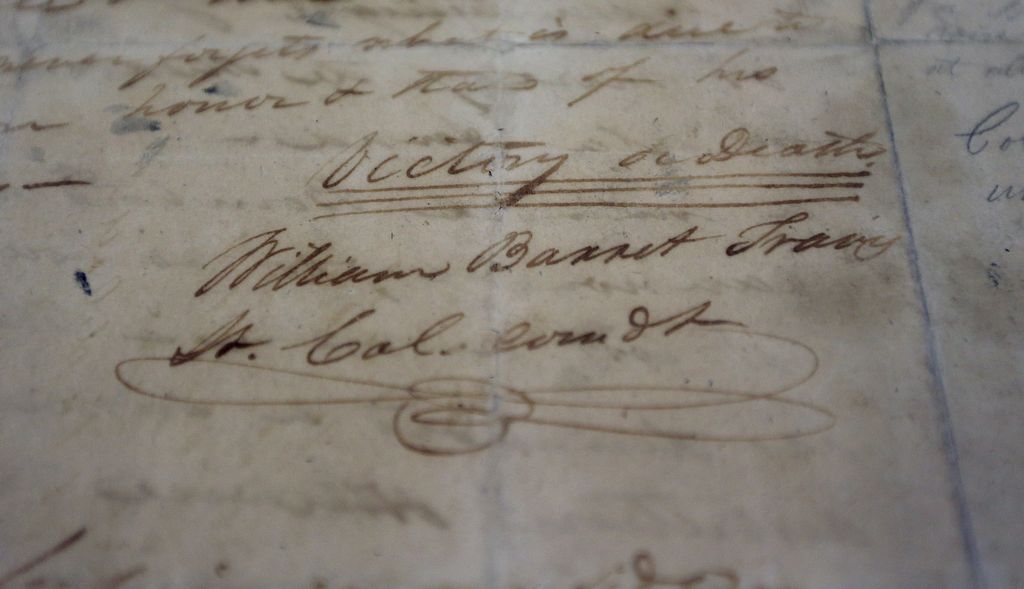 never forgets what is due to
honor & that of his
Victory or Death
William Barret Travis
Lt. Col. comdt